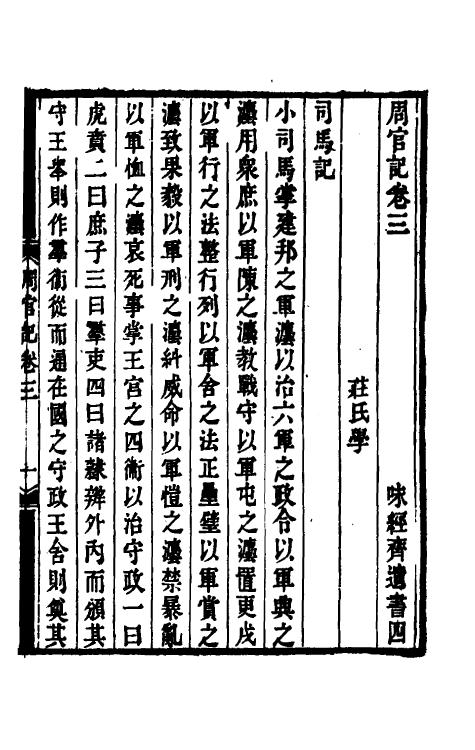 周官記卷三　味經齋遺書四
莊氏學
司馬記
小司馬掌建邦之軍灋以治六軍之政令以軍興之
灋用衆庶以軍陳之灋教戰守以軍屯之灋置更戍
以軍行之法整行列以軍舍之法正壘壁以軍賞之
灋致果毅以軍刑之灋糾威命以軍愷之灋禁暴亂
以軍恤之灋哀死事掌王宮之四衛以治守政一曰
虎賁二曰庶子三曰羣吏四曰諸隸辨外內而頒其
守王举則作羣衛從而通在國之守政王舍則奠其
周官記卷三　十